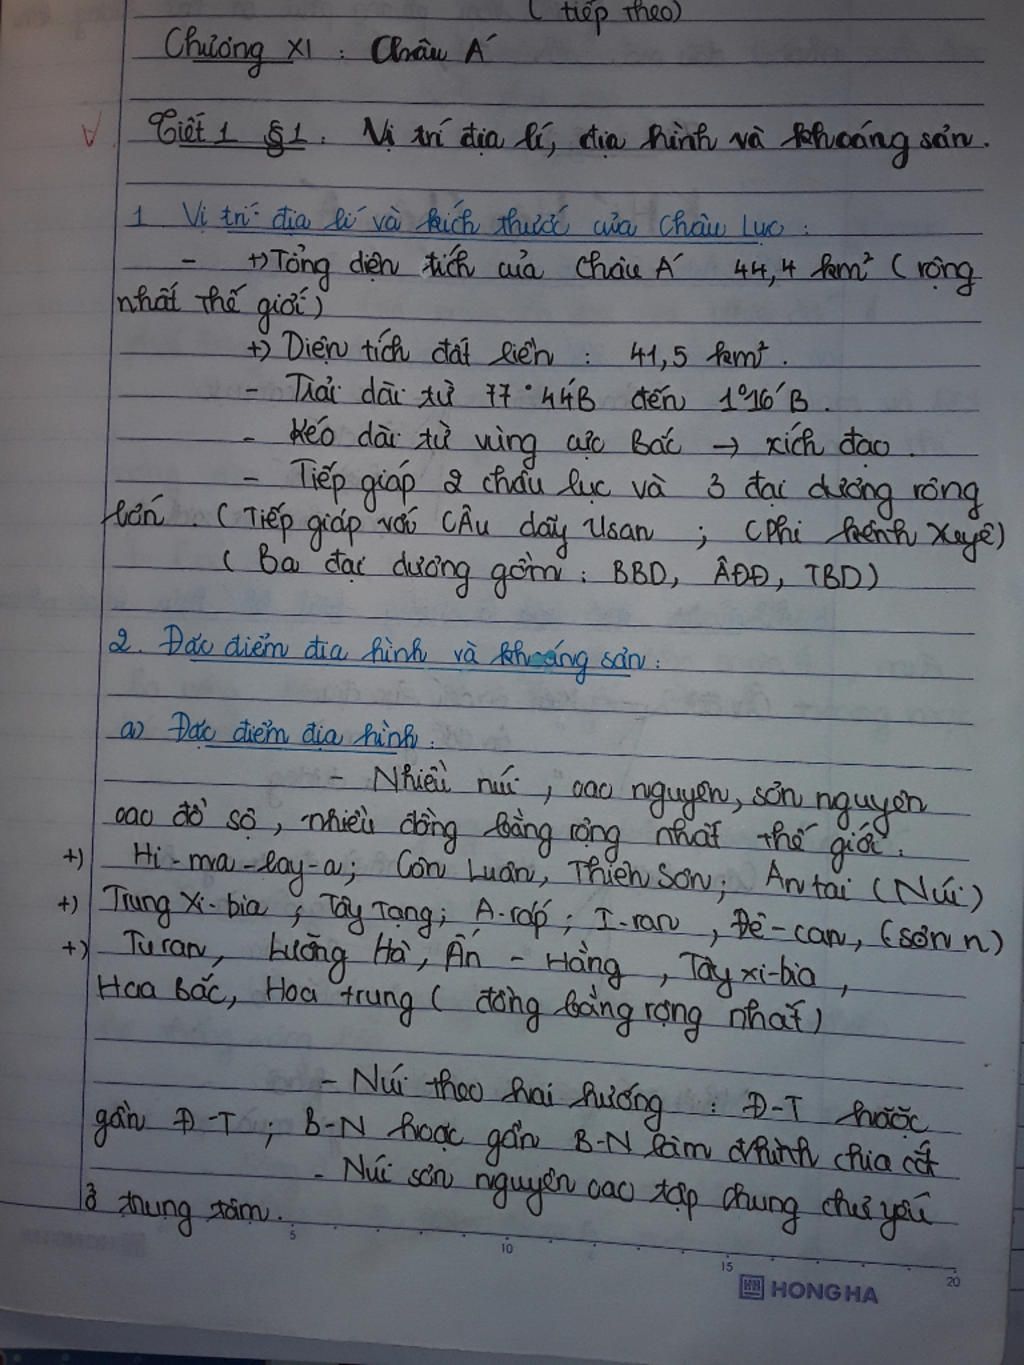 ( tiếp theo)
Chương XI : Châu Á
Tiết 1 §1 : Vị trí địa lí, địa hình và khoáng sản.
1 Vị trí địa lí và kích thước của châu lục :
- +) Tổng diện tích của Châu Á 44,4 km² ( rộng
nhất thế giới )
+) Diện tích đất liền : 41,5 km².
- Trải dài từ 77°44'B đến 1°16'B .
- Kéo dài từ vùng cực Bắc → xích đạo .
- Tiếp giáp 2 châu lục và 3 đại dương rộng
lớn . ( Tiếp giáp với CÂu dãy Usan ; ( Phi kênh Xuyê)
( Ba đại dương gồm : BBD, ÂĐD, TBD)
2. Đặc điểm địa hình và khoáng sản :
a) Đặc điểm địa hình :
- Nhiều núi , cao nguyên, sơn nguyên
cao đồ sộ , nhiều đồng bằng rộng nhất thế giới .
+) Hi-ma-lay-a ; Côn Luân, Thiên Sơn ; An tai ( Núi )
+) Trung Xi-bia ; Tây Tạng ; A-ráp ; I-ran , Đê-can, (sơn n)
+) Turan, Lưỡng Hà , Ấn - Hằng , Tây xi-bia ,
Hoa Bắc, Hoa trung ( đồng bằng rộng nhất )
- Núi theo hai hướng : Đ-T hoặc
gần Đ-T ; B-N hoặc gần B-N làm đ hình chia cắt
- Núi sơn nguyên cao tập chung chủ yếu
ở trung tâm.
5 10 15 20
HH HONG HA